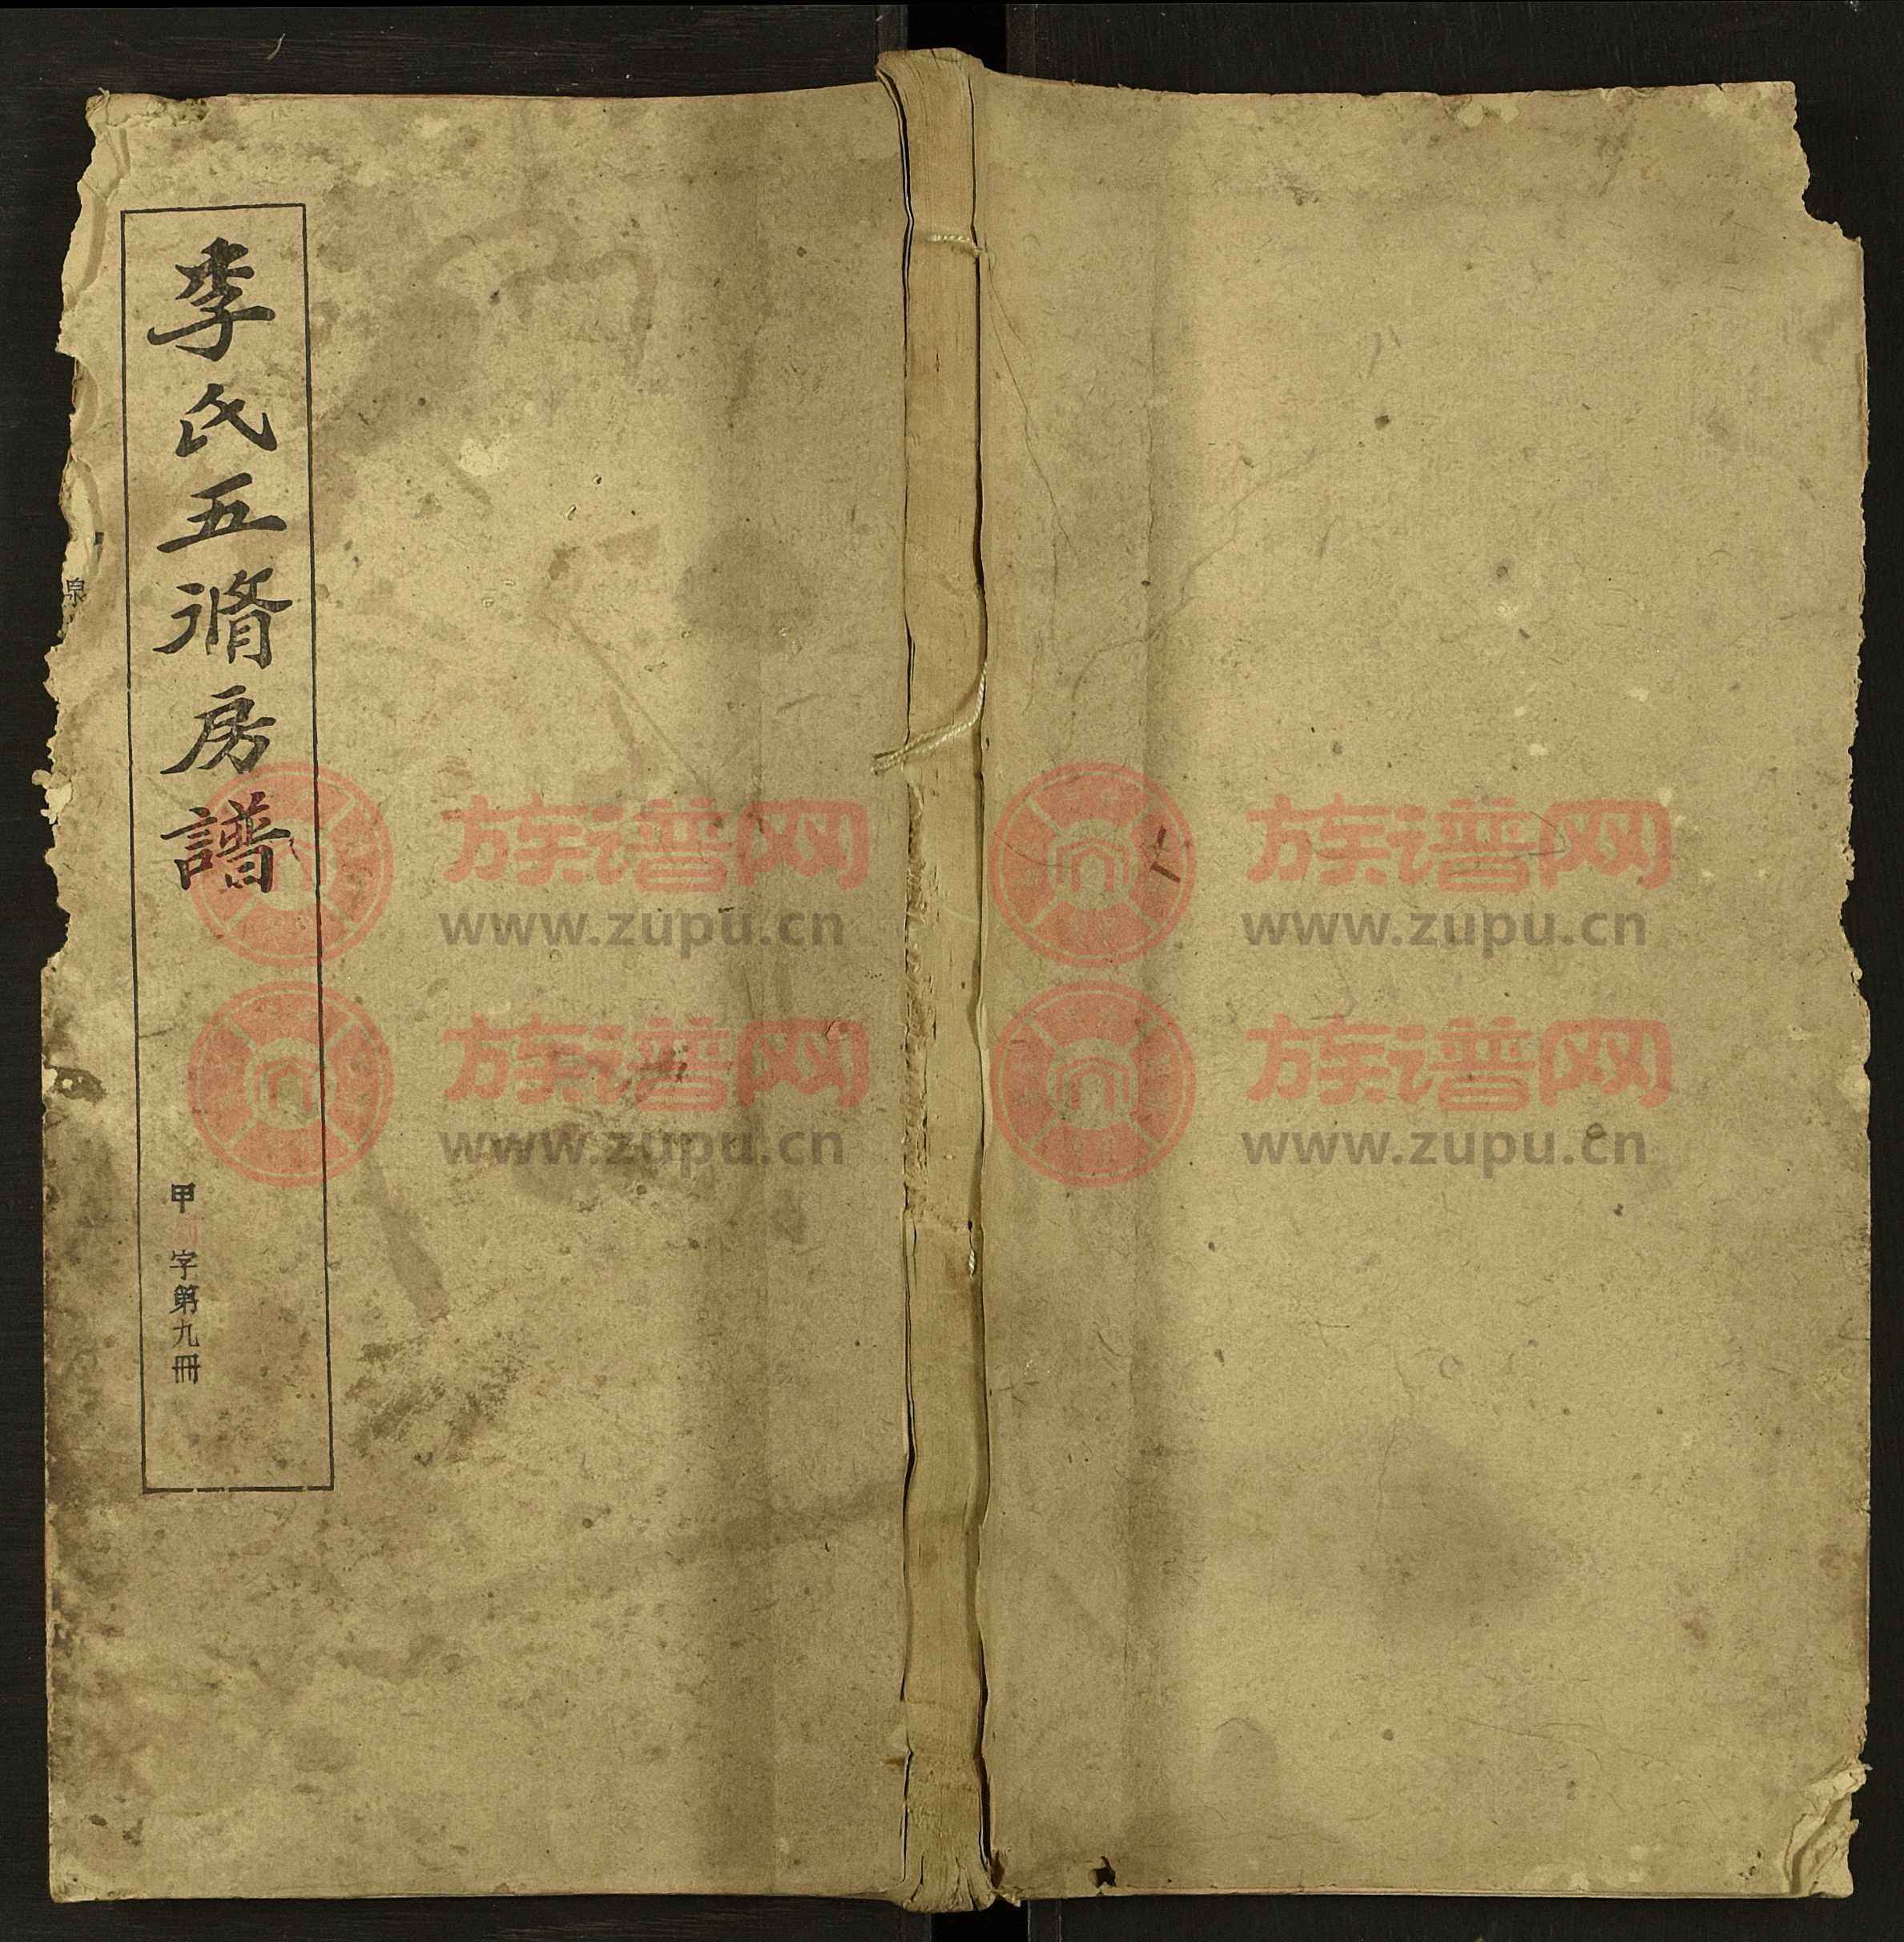 李氏五脩房譜
甲字第九冊
泉
族谱网
www.zupu.cn
族谱网
www.zupu.cn
族谱网
www.zupu.cn
族谱网
www.zupu.cn